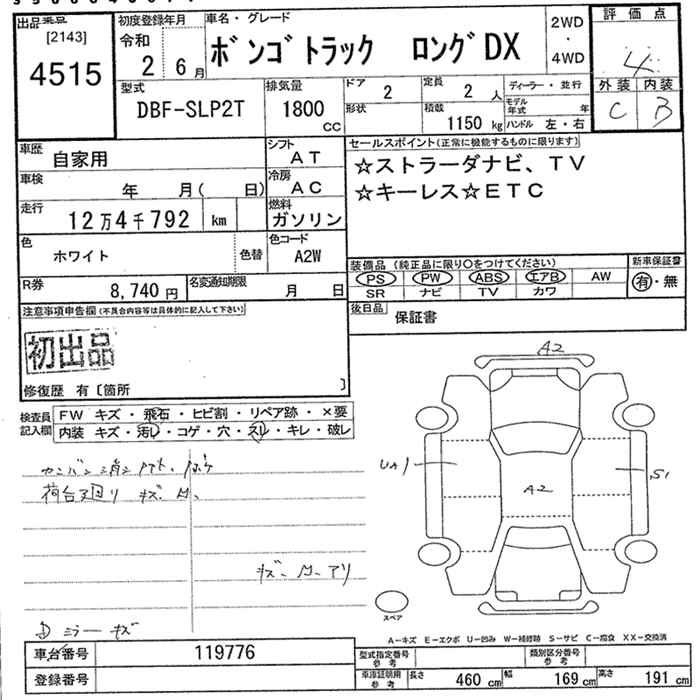 出品番号
[2143]
4515
初度登録年月
令和
2 6月
車名・グレード
ボンゴトラック ロングDX
2WD
・
4WD
評価点
4
外装 内装
C B
型式
DBF-SLP2T
排気量
1800
CC
ドア
2
形状
定員
2 人
積載
1150 kg
ディーラー・並行
モデル年式 年
ハンドル 左・右
車歴
自家用
シフト
AT
車検
年 月( 日)
冷房
AC
走行
12万4千792 km
燃料
ガソリン
色
ホワイト
色替
色コード
A2W
R券
8,740 円
名変通知期限
月 日
セールスポイント(正常に機能するものに限ります)
☆ストラーダナビ、TV
☆キーレス☆ETC
装備品(純正品に限り○をつけてください)
PS PW ABS エアB AW
SR ナビ TV カワ
新車保証書
有・無
後日品
保証書
注意事項申告欄(不具合内容等は具体的に記入して下さい)
初出品
修復歴 有〔箇所 〕
検査員
記入欄
FW キズ・飛石・ヒビ割・リペア跡・×要
内装 キズ・汚レ・コゲ・穴・スレ・キレ・破レ
荷台廻り キズ、
キズ アリ
ミラー キズ
A2
UA1
A2
S1
スペア
A-キズ E-エクボ U-凹み W-補修跡 S-サビ C-腐食 XX-交換済
車台番号
119776
登録番号
型式指定番号
参考
類別区分番号
参考
車庫証明用
参考
長さ 460 cm 幅 169 cm 高さ 191 cm